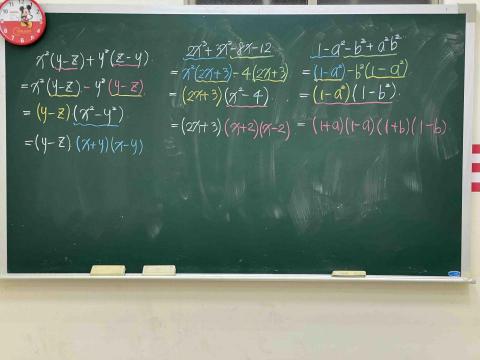 x²(y-z)+y²(z-y)
=x²(y-z)-y²(y-z)
=(y-z)(x²-y²)
=(y-z)(x+y)(x-y)
2x³+3x²-8x-12
=x²(2x+3)-4(2x+3)
=(2x+3)(x²-4)
=(2x+3)(x+2)(x-2)
1-a²-b²+a²b²
=(1-a²)-b²(1-a²)
=(1-a²)(1-b²)
=(1+a)(1-a)(1+b)(1-b)